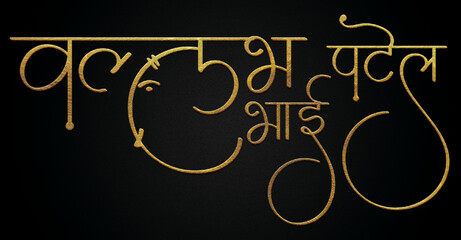 वल्लभ भाई पटेल